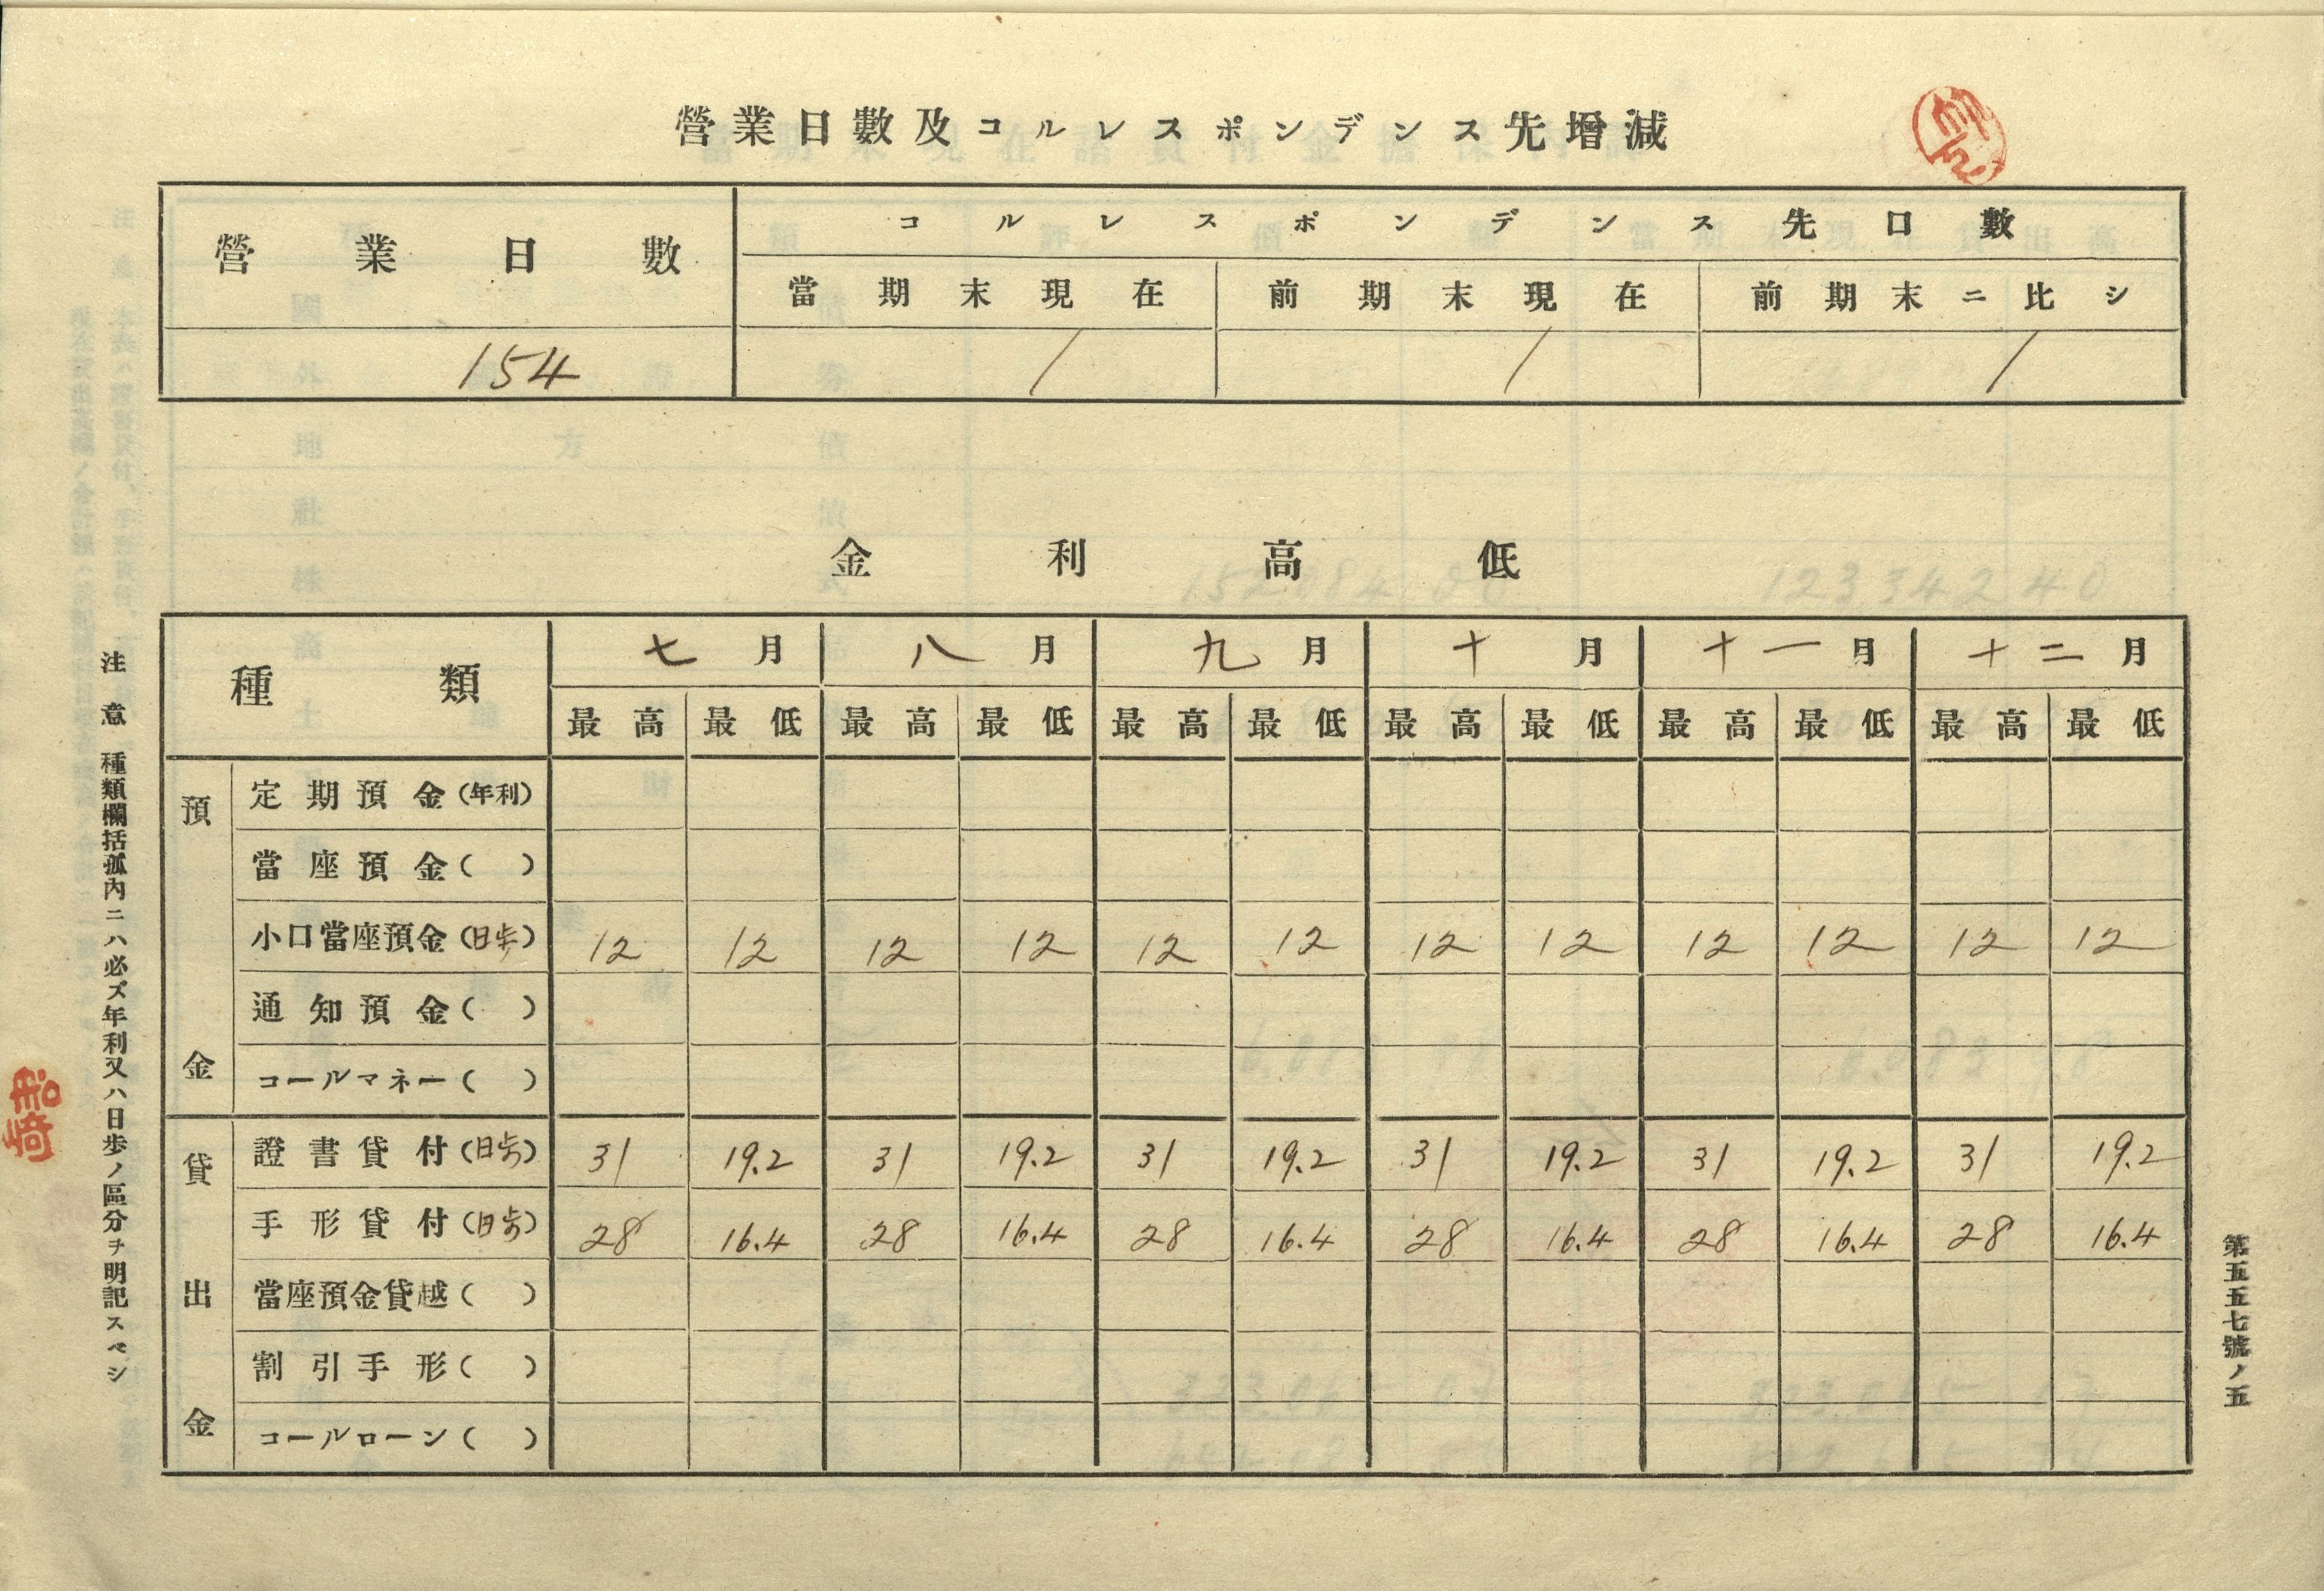 營業日數及コルレスポンデンス先增減
營業日數
コルレスポンデンス先口數
當期末現在 前期末現在 前期末ニ比シ
154 / / /
金利高低
種類 七月 八月 九月 十月 十一月 十二月
最高 最低 最高 最低 最高 最低 最高 最低 最高 最低 最高 最低
預金
定期預金(年利)
當座預金( )
小口當座預金(日歩) 12 12 12 12 12 12 12 12 12 12 12 12
通知預金( )
コールマネー( )
貸出金
證書貸付(日歩) 31 19.2 31 19.2 31 19.2 31 19.2 31 19.2 31 19.2
手形貸付(日歩) 28 16.4 28 16.4 28 16.4 28 16.4 28 16.4 28 16.4
當座預金貸越( )
割引手形( )
コールローン( )
注意 種類欄括孤內ニハ必ズ年利又ハ日歩ノ區分ヲ明記スベシ
第五五七號ノ五
船崎